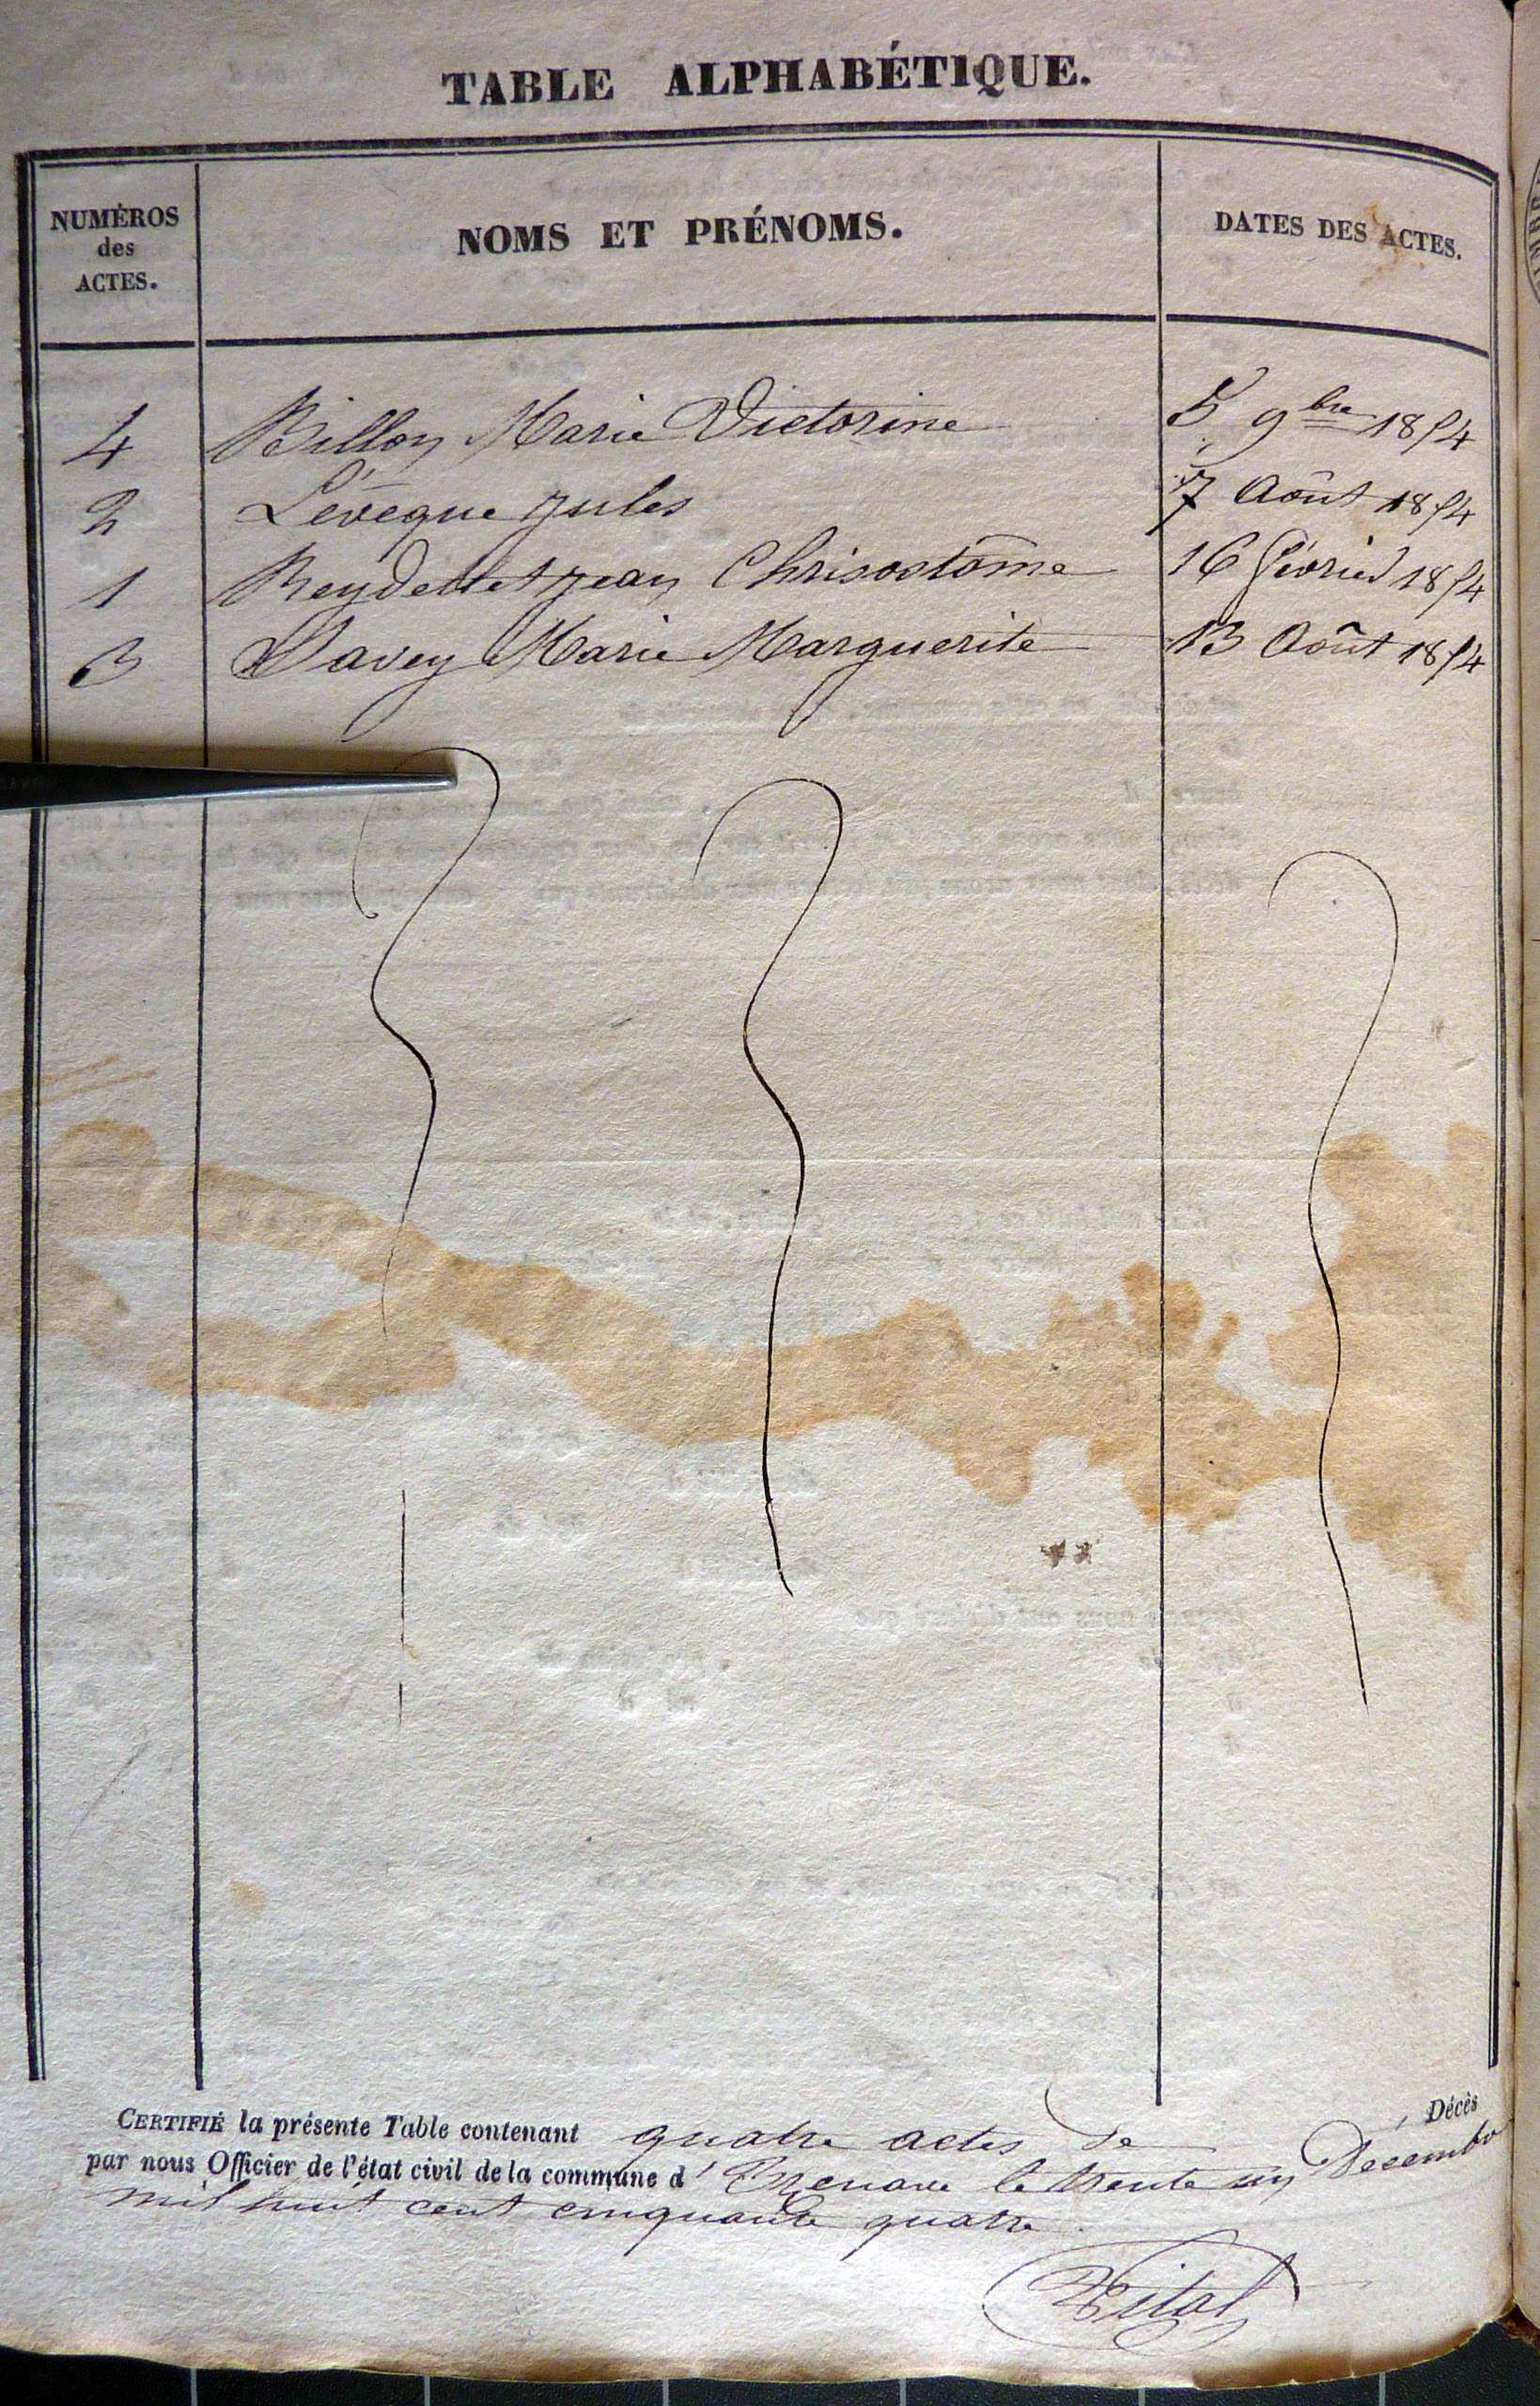 TABLE ALPHABÉTIQUE.
NUMÉROS
des
ACTES.
NOMS ET PRÉNOMS.
DATES DES ACTES.
4 Billon Marie Victorine 5 9bre 1854
2 Lévêque Jules 7 Août 1854
1 Reydellet Jean Chrisostôme 16 Février 1854
3 Savey Marie Marguerite 13 Août 1854
CERTIFIÉ la présente Table contenant quatre actes de Décès
par nous Officier de l'état civil de la commune d' le trente un Décembre
mil huit cent cinquante quatre.
Vital